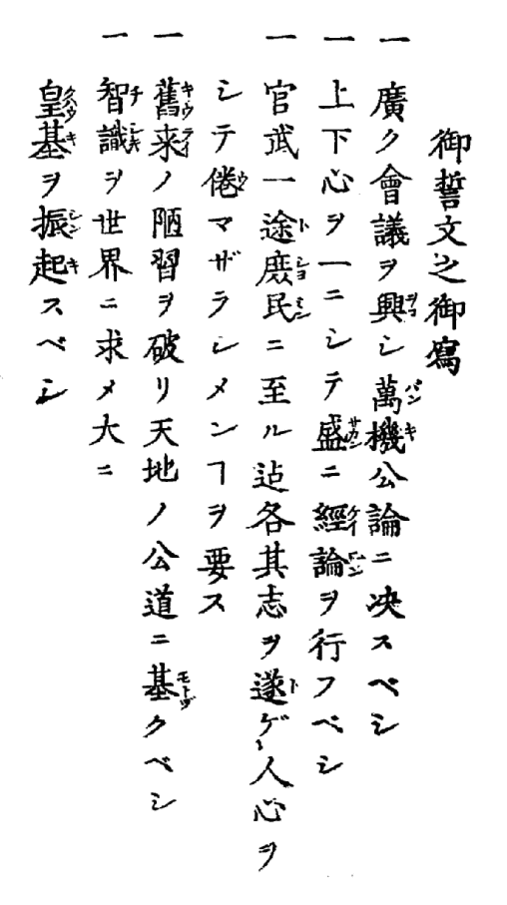 御誓文之御寫
一 廣ク會議ヲ興シ萬機公論ニ決スベシ
一 上下心ヲ一ニシテ盛ニ經論ヲ行フベシ
一 官武一途庶民ニ至ル迠各其志ヲ遂ゲ人心ヲ
シテ倦マザラシメンヿヲ要ス
一 舊来ノ陋習ヲ破リ天地ノ公道ニ基クベシ
一 智識ヲ世界ニ求メ大ニ
皇基ヲ振起スベシ